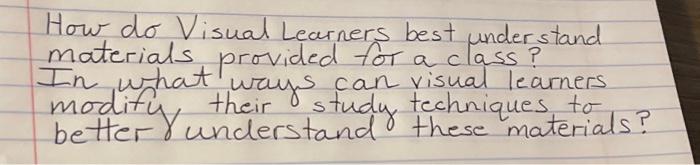 How do Visual Learners best understand
materials provided for a class?
In what ways can visual learners
modify their study techniques to
better understand these materials?